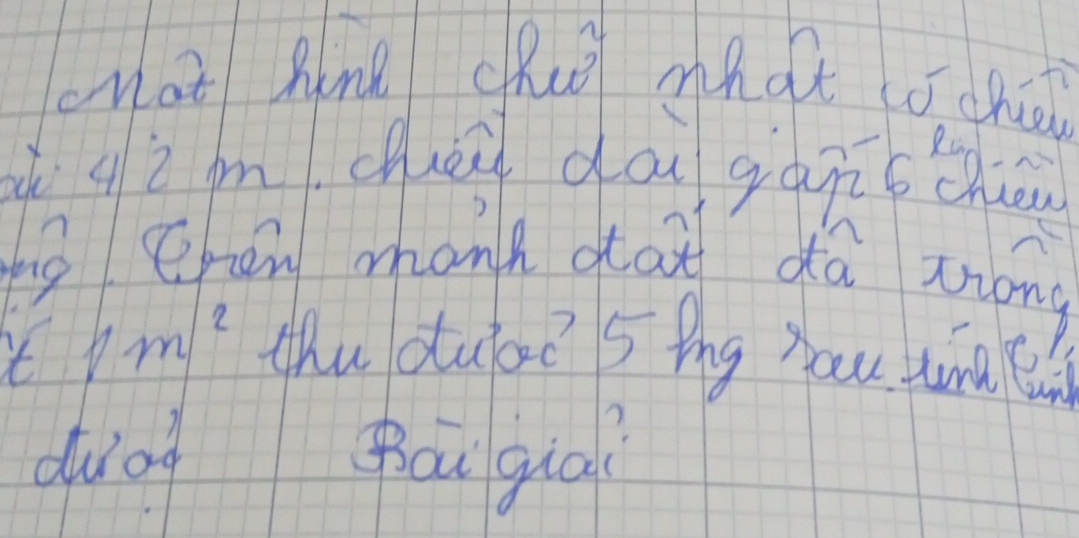 Một hình chữ nhật có chiều
dài 42 m. chiều dài gấp 6 lần chiều
rộng. Trên mảnh đất đã trồng
1 m² thu được 5 kg rau. tính
được Bài giải